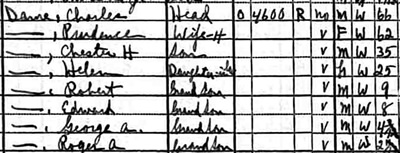 Dame, Charles Head O 4600 R no M W 66
—, Prudence Wife-H V F W 62
—, Chester H Son V M W 35
—, Helen Daughter-in-l V F W 25
—, Robert Grandson V M W 9
—, Edward Grandson V M W 8
—, George A. Grandson V M W
—, Roger A Grandson V M W